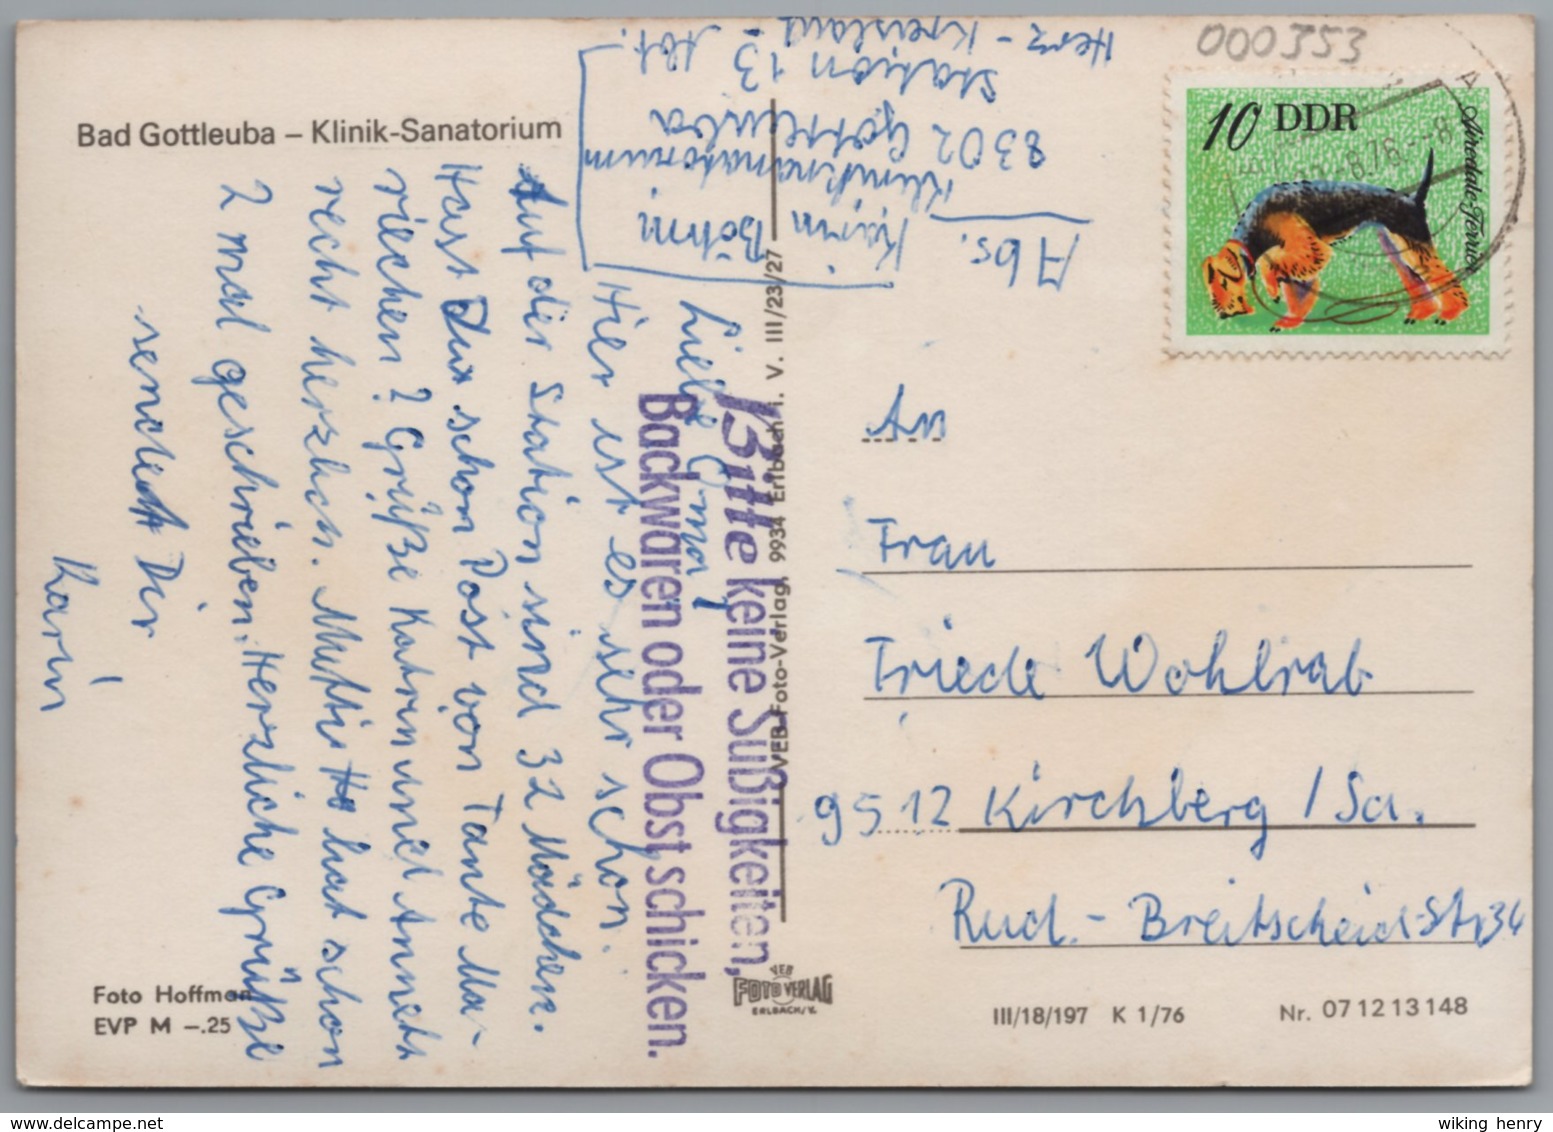 000353
10 DDR
Airedale-Terrier
8.76.--8
Bad Gottleuba – Klinik-Sanatorium
Abs.
Karin Böhm
Kliniksanatorium
8302 Gottleuba
Station 13
Herz-Kreislauf-Abt.
Liebe Oma!
Hier ist es sehr schon.
Auf der Station sind 32 Mädchen.
Hast Du schon Post von Tante Ma-
riechen? Grüße Katrin und Annett
recht herzlich. Mutti hat schon
2 mal geschrieben. Herzliche Grüße
sendet Dir
Karin
Bitte keine Süßigkeiten,
Backwaren oder Obst schicken.
VEB Foto-Verlag, 9934 Erlbach i. V. III/23/27
An
Frau
Friede Wohlrab
9512 Kirchberg / Sa.
Rud.-Breitscheid-Str 34
VEB
FOTO VERLAG
ERLBACH/V.
Foto Hoffmann
EVP M –.25
III/18/197 K 1/76
Nr. 07 12 13 148
wiking henry